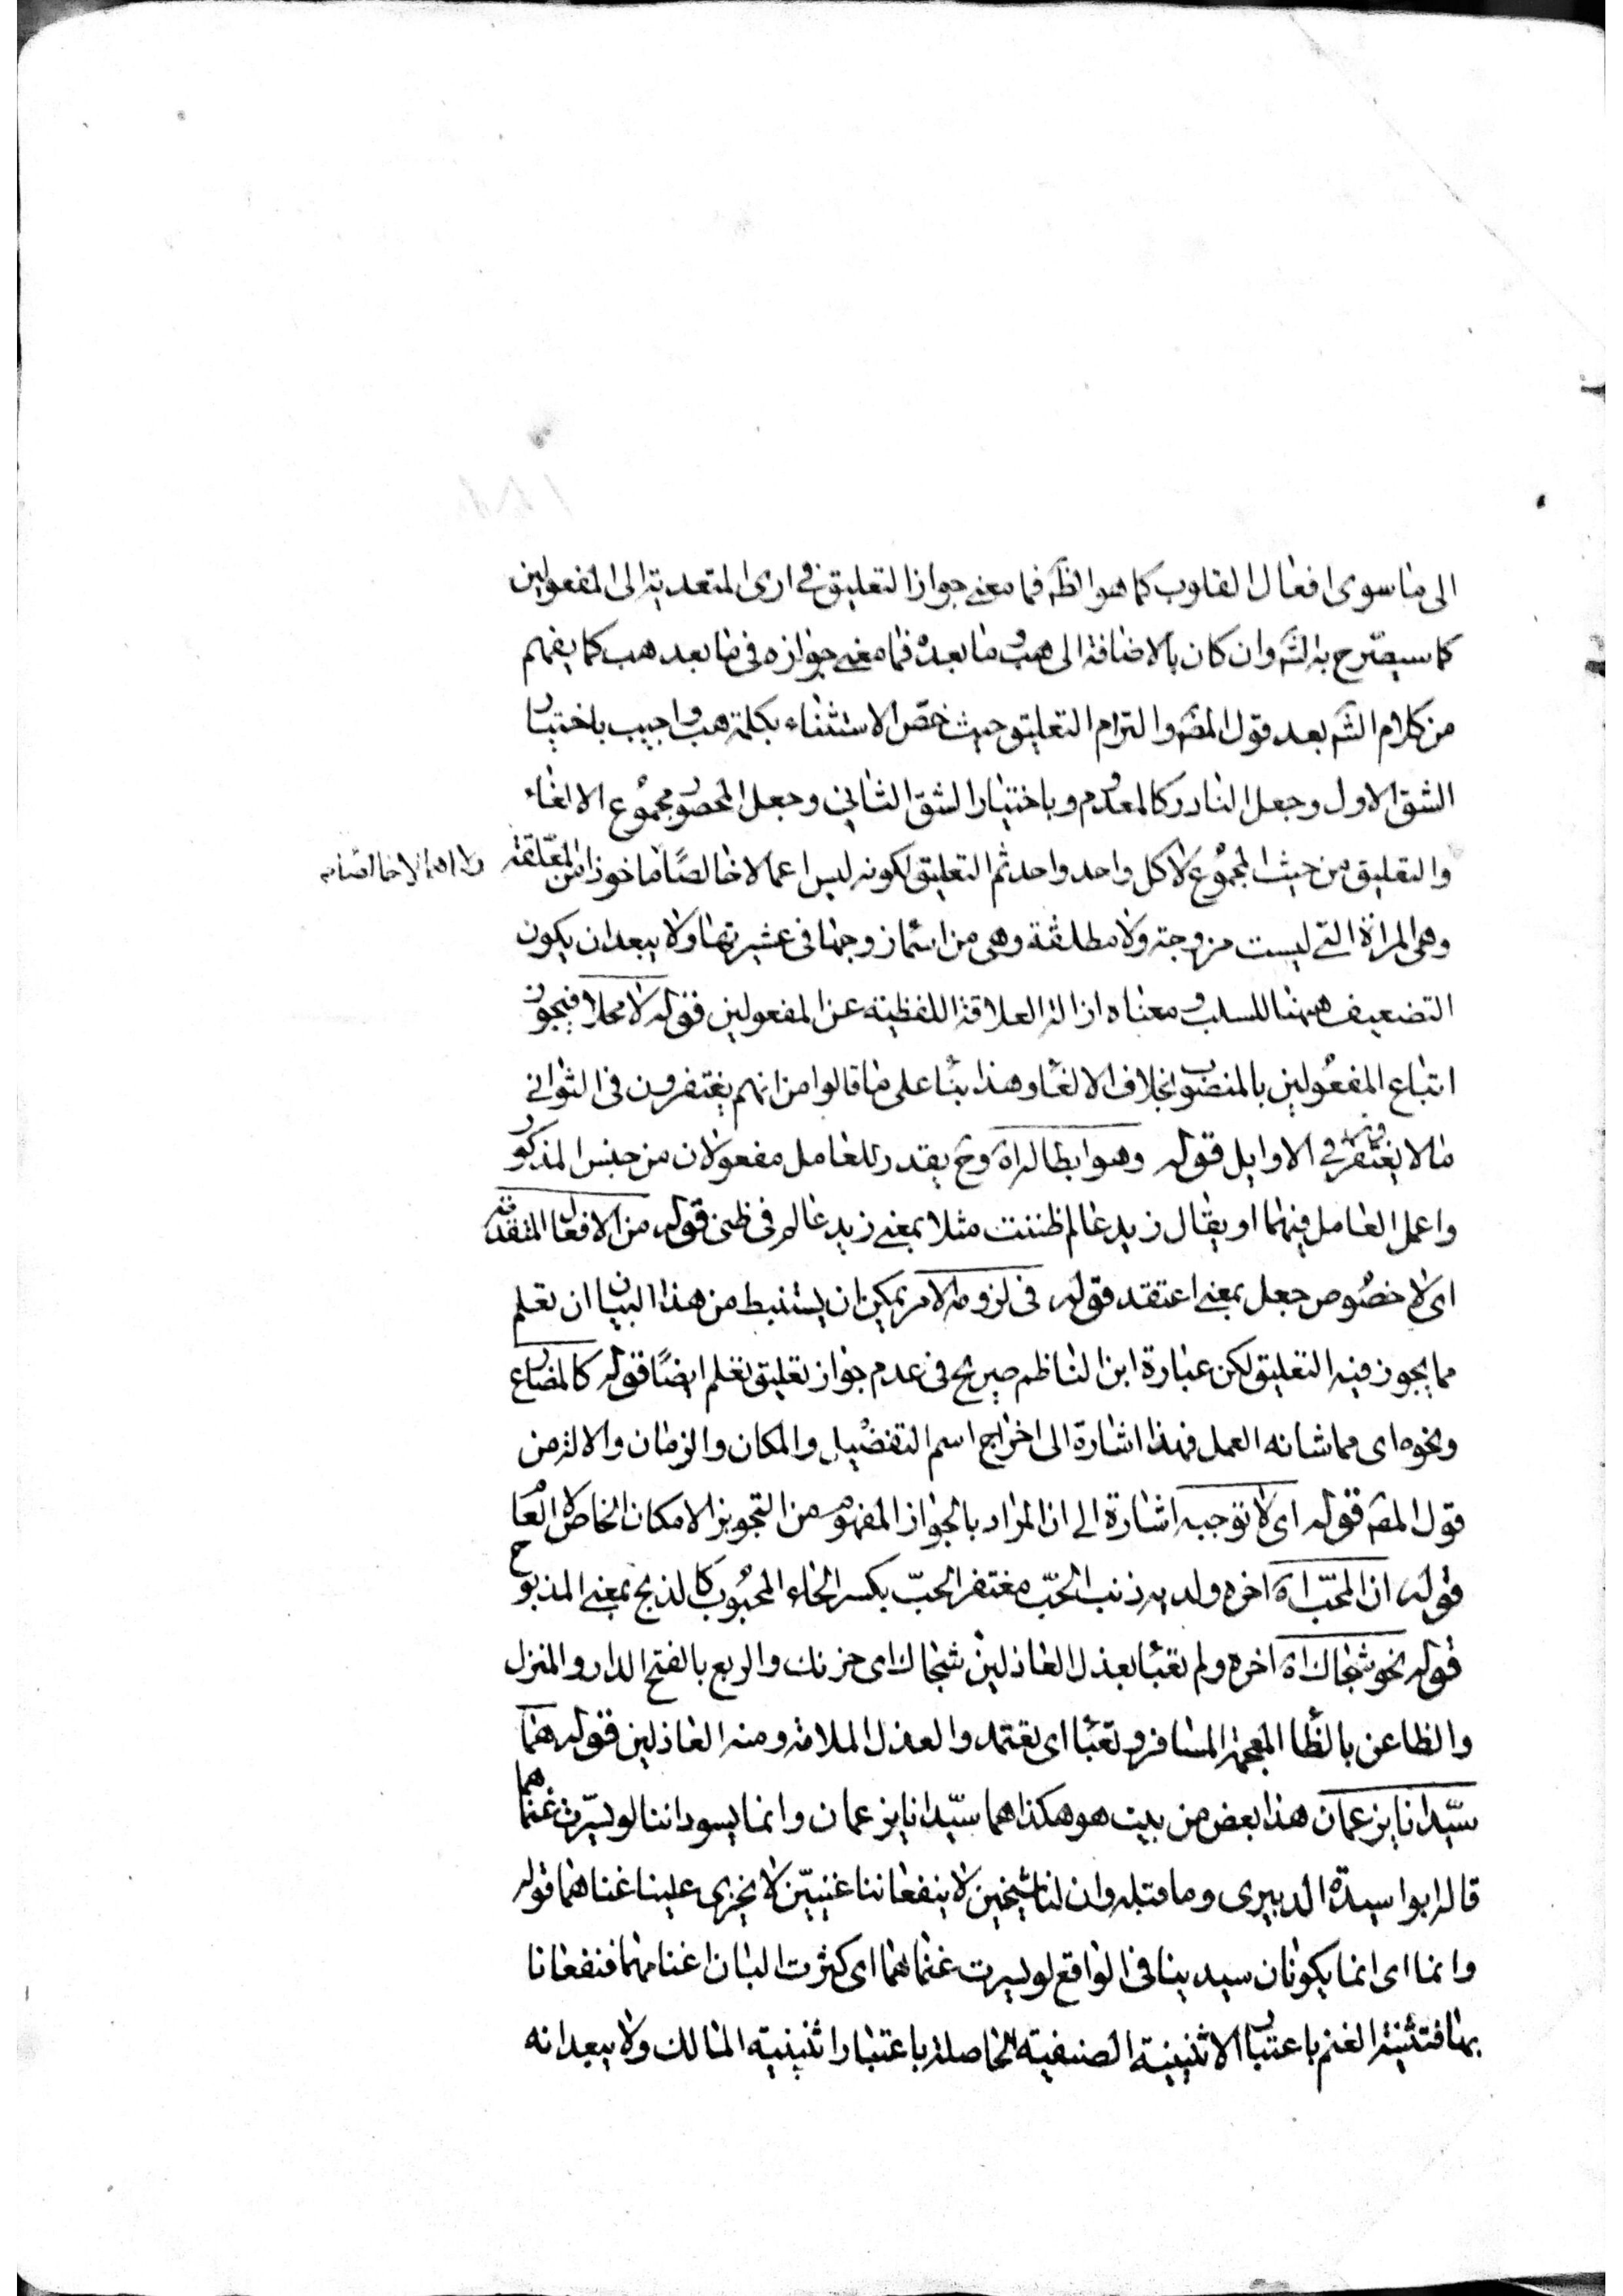 الى ما سوى افعال القلوب كما هو الظه فما معنى جواز التعليق فى ارى المتعدية الى المفعولين
كما سيصرّح به الشه وان كان بالاضافة الى هب وما بعده فما معنى جوازه فى ما بعد هب كما يفهم
من كلام الشه بعد قول المصه والتزم التعليق حيث خصّ الاستثناء بكلمة هب واجيب باختيار
الشق الاول وجعل النادر كالمعدوم وباختيار الشق الثانى وجعل المحصور مجموع الالغاء
والتعليق من حيث المجموع لا كل واحد واحد ثم التعليق لكونه ليس اعمالا خالصًا ماخوذ من المعلّقة
ولا اهمالا خالصا
وهى المراة التى ليست مزوجة ولا مطلقة وهى من اسماء زوجها فى عشيرتها ولا يبعد ان يكون
التضعيف ههنا للسلب ومعناه ازالة العلاقة اللفظية عن المفعولين قوله لا محلا فيجوز
اتباع المفعولين بالمنصوب بخلاف الالغاء وهذا بناء على ما قالوا من انهم يغتفرون فى الثوانى
ما لا يغتفر فى الاوايل قوله وهو ابطاله اه وح يقدر للعامل مفعولان من جنس المذكور
واعمل العامل فيهما او يقال زيد عالم ظننت مثلا بمعنى زيد عالم فى ظنى قوله من الافعال المتقدمة
اى لا خصوص جعل بمعنى اعتقد قوله فى لزومه الامر يمكن ان يستنبط من هذا البيان ان تعلم
مما يجوز فيه التعليق لكن عبارة ابن الناظم صريح فى عدم جواز تعليق تعلم ايضًا قوله كالمضارع
ونحوه اى مما شانه العمل فهذا اشارة الى اخراج اسم التفضيل والمكان والزمان والالة من
قول المصه قوله اى لا توجبه اشارة الى ان المراد بالجواز المفهوم من التجويز الامكان الخاص لا العام
قوله ان المحبّ اه اخره ولديه ذنب الحبّ مغتفر الحبّ بكسر الحاء المحبوب كالذبح بمعنى المذبوح
قوله نحو شجاك اه اخره ولم تعبا بعذل العاذلين شجاك اى حزنك والربع بالفتح الدار والمنزل
والظاعن بالظاء المعجمة المسافر وتعبا اى تعتمد والعذل الملامة ومنه العاذلين قوله هما
سيّدانا يزعمان هذا بعض من بيت هو هكذا هما سيّدانا يزعمان وانما يسوداننا لو يسّرت غنماهما
قاله ابو اسيدة الدبيرى وما قبله وان لنا شيخين لا ينفعاننا غنيّين لا يجزى علينا غناهما قوله
وانما اى انما يكونان سيدينا فى الواقع لو يسرت غنماهما اى كثرت البان اغنامهما فنفعانا
بها فتثنية الغنم باعتبار الاثنينية الصنفية الحاصلة باعتبار اثنينية المالك ولا يبعد انه